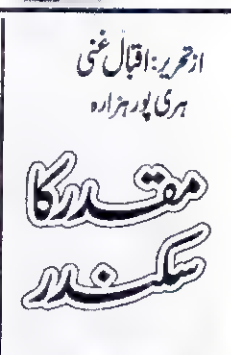 از تحریر: اقبال غنی
ہری پور ہزارہ
مقدر کا
سکندر